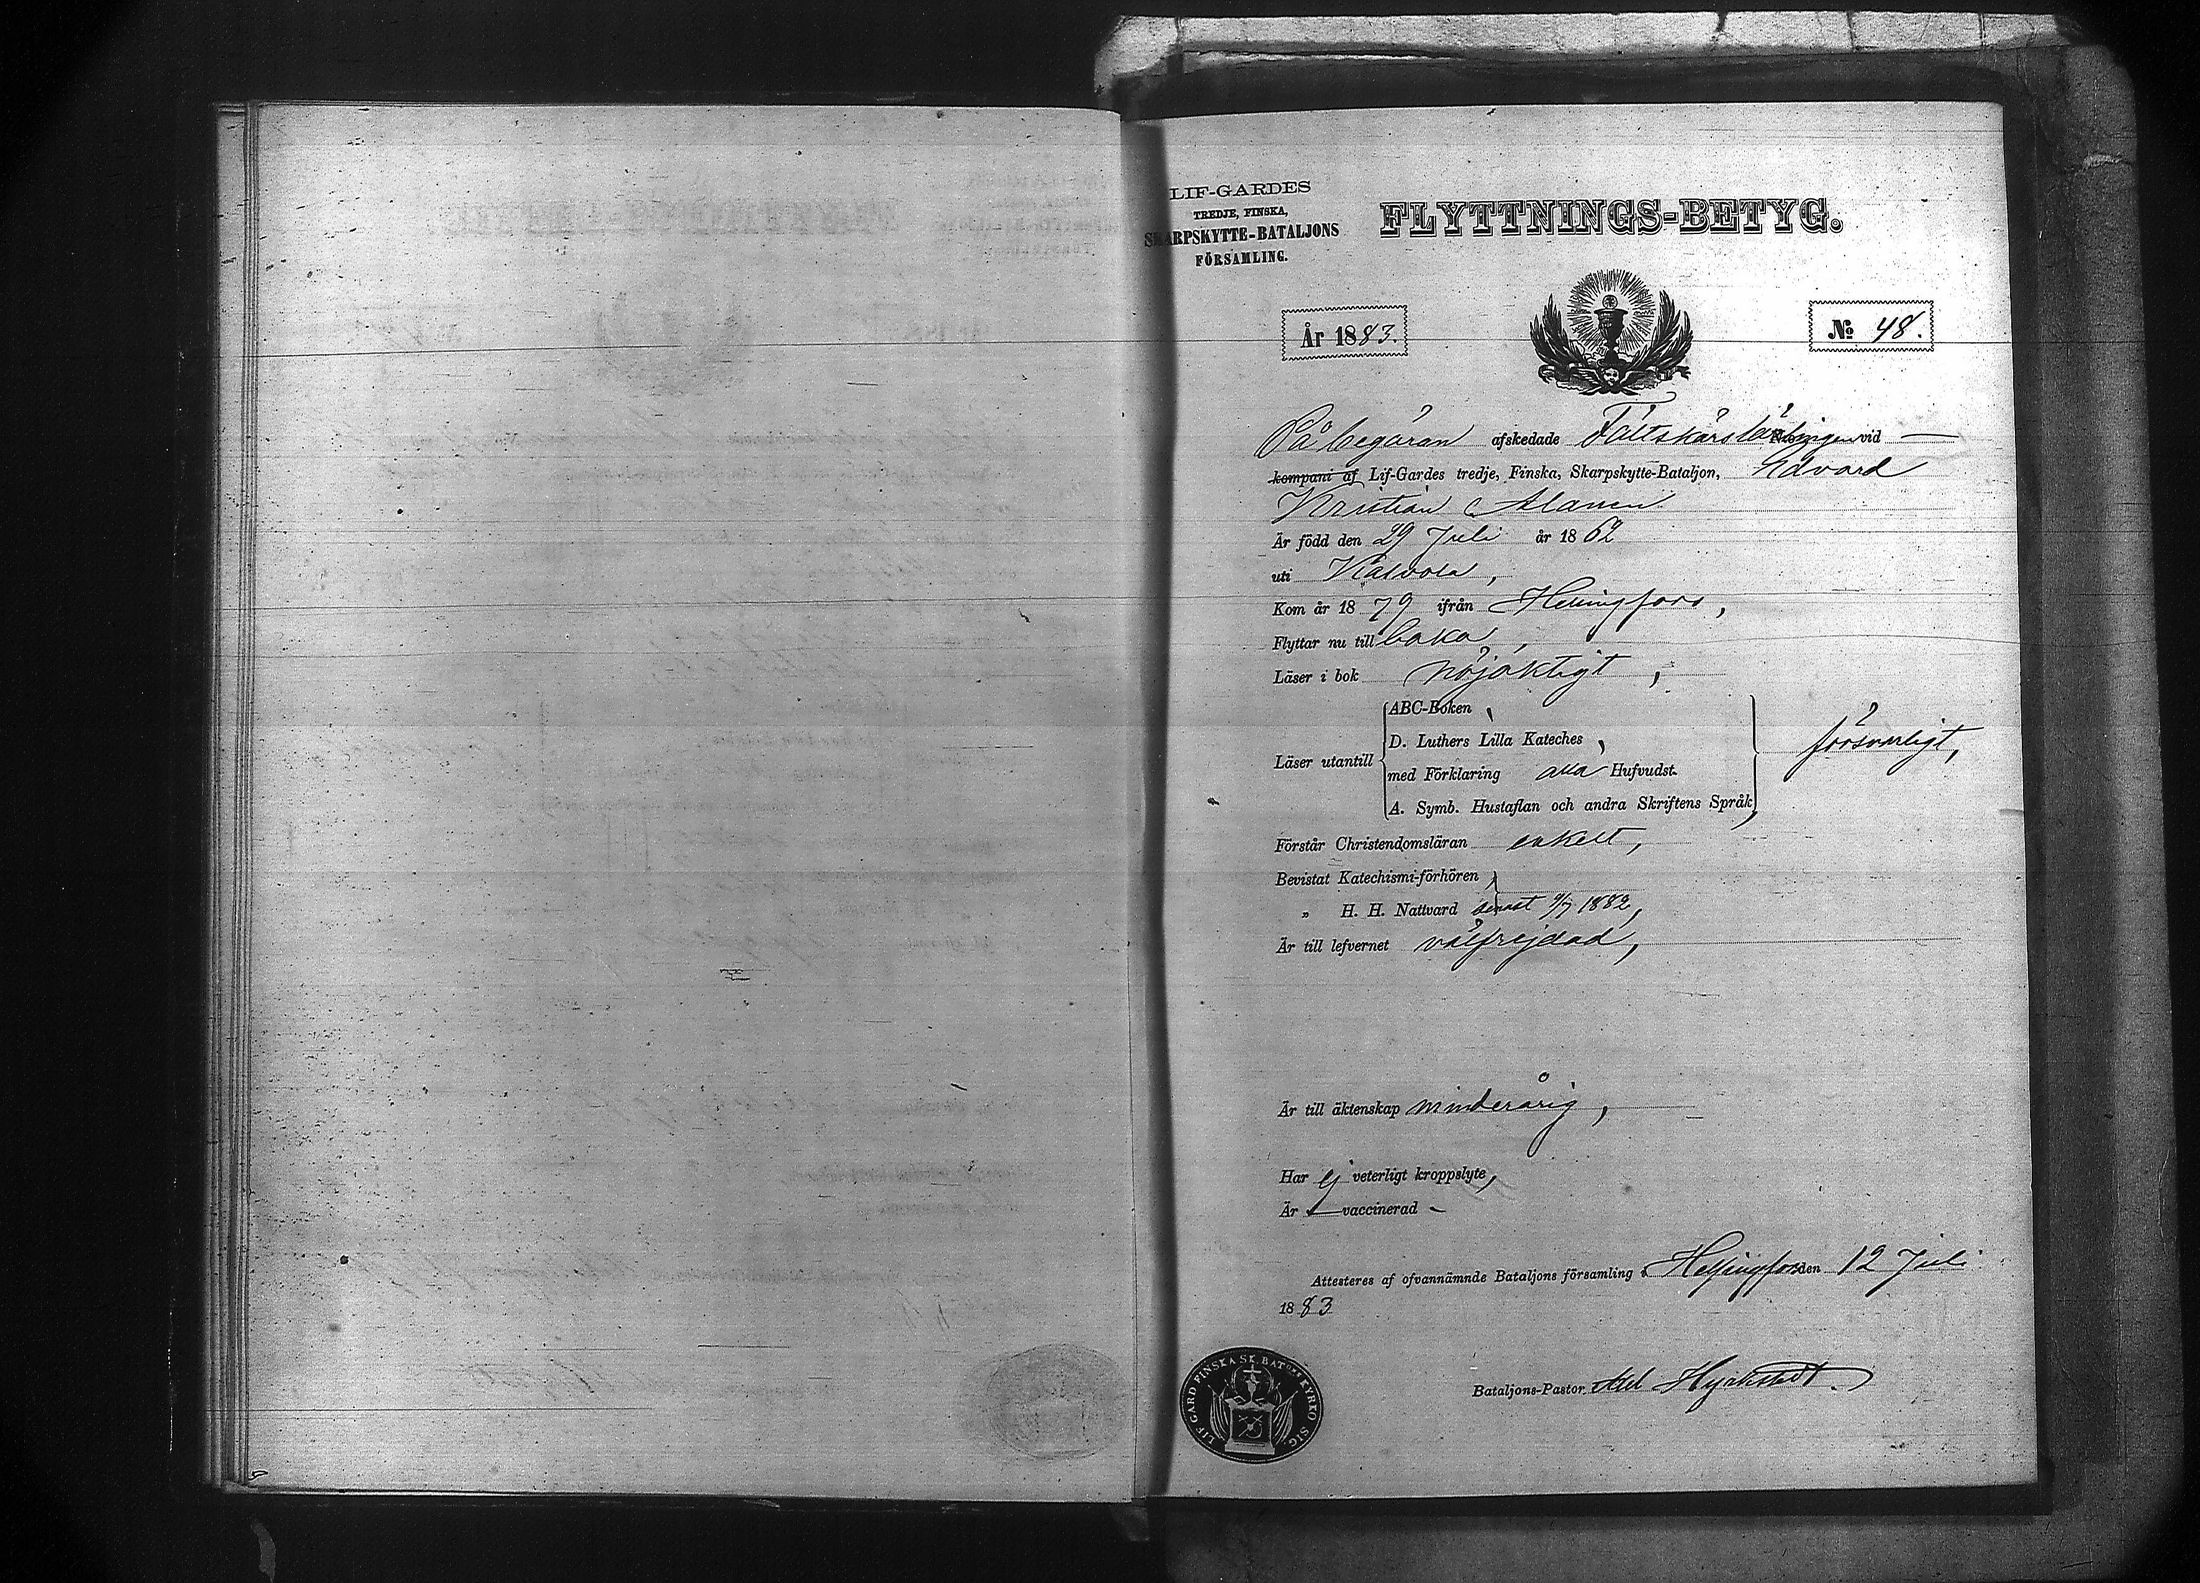 LIF-GARDES
TREDJE, FINSKA,
SKARPSKYTTE-BATALJONS
FÖRSAMLING.
FLYTTNINGS-BETYG.
År 1883.
№ 48.
På begäran afskedade Fältskärslärlingen vid —
kompani af Lif-Gardes tredje, Finska, Skarpskytte-Bataljon, Edvard
Kristian Alanen
Är född den 29 Juli år 1862
uti Kalvola,
Kom år 1879 ifrån Helsingfors,
Flyttar nu till baka,
Läser i bok nöjaktigt,
Läser utantill
ABC-Boken,
D. Luthers Lilla Kateches,
med Förklaring alla Hufvudst.
A. Symb. Hustaflan och andra Skriftens Språk,
försvarligt,
Förstår Christendomsläran enkelt,
Bevistat Katechismi-förhören
„ H. H. Nattvard senast 9/7 1882,
Är till lefvernet välfrejdad,
Är till äktenskap minderårig,
Har ej veterligt kroppslyte,
Är — vaccinerad —
Attesteras af ofvannämnde Bataljons församling i Helsingfors den 12 Juli
1883
Bataljons-Pastor. Axel Hjckstedt
LIF GARD FINSKA SK. BAT:ONS KYRKO SIG.